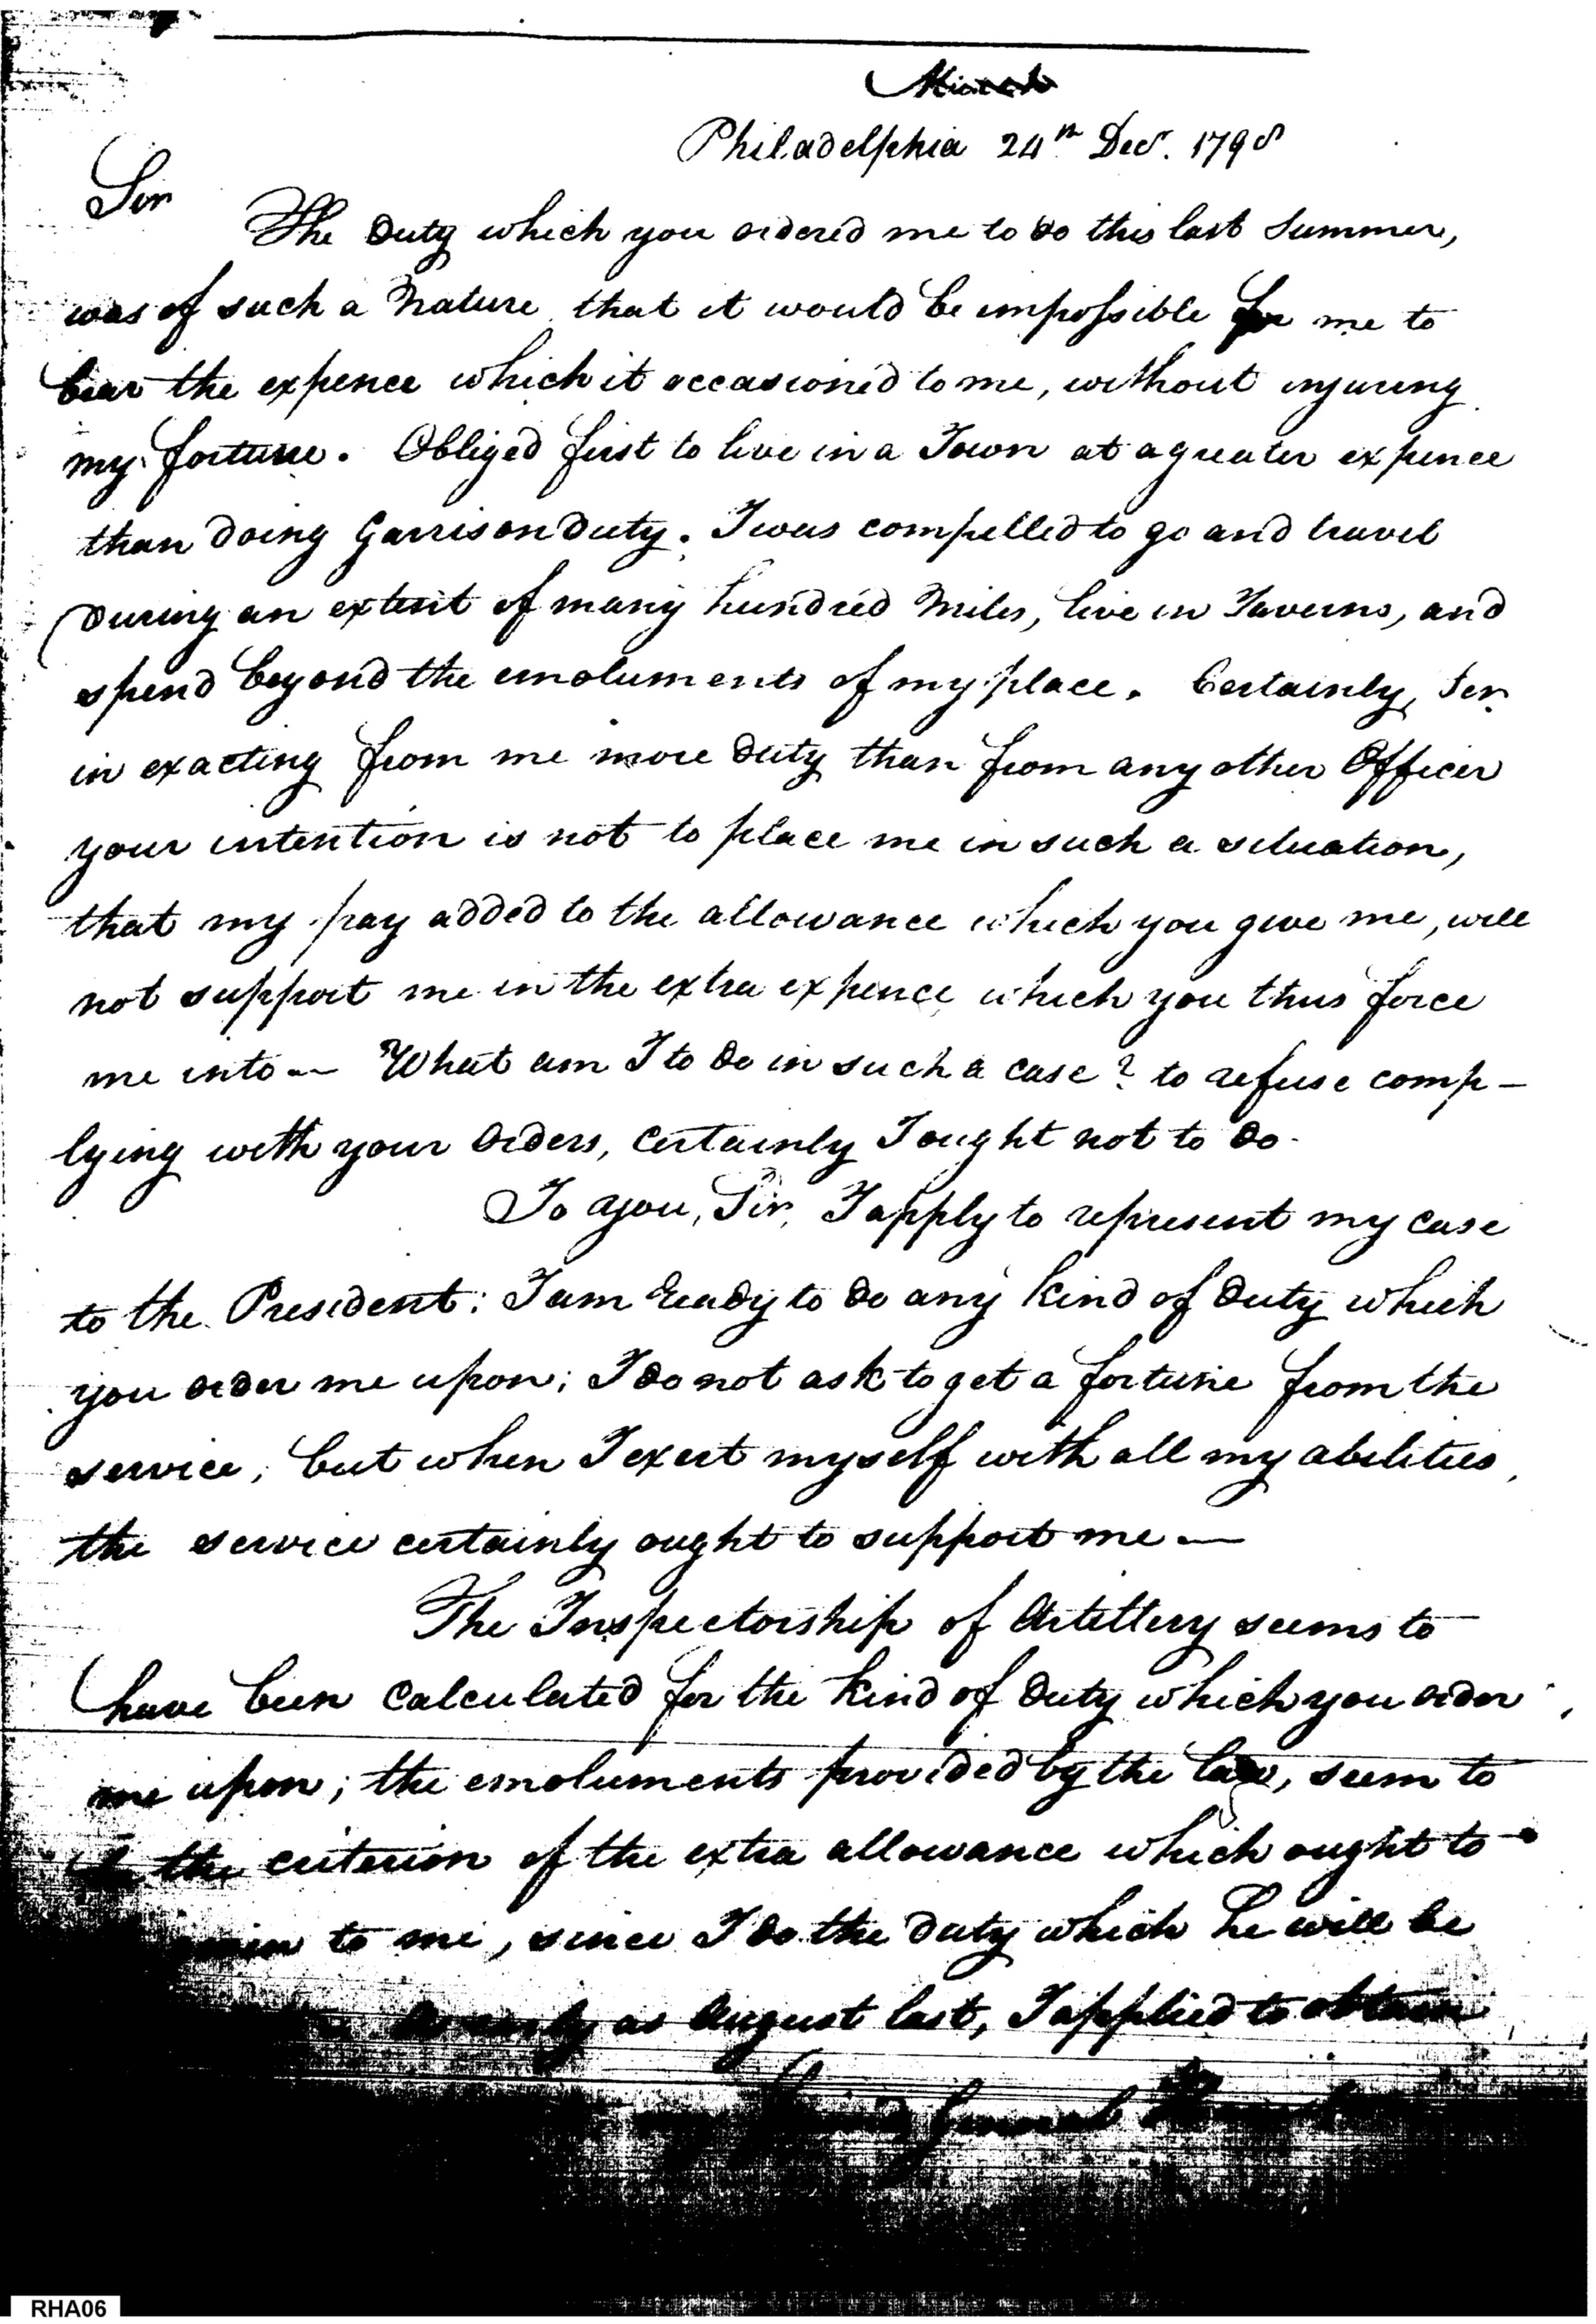 Philadelphia 24th Decr. 1798
Sir
The Duty which you ordered me to do this last Summer,
was of such a Nature that it would be impossible for me to
bear the expence which it occasioned to me, without injuring
my fortune. Obliged first to live in a Town at a greater expence
than doing Garrison duty. I was compelled to go and travel
During an extent of many hundred Miles, live in Taverns, and
spend beyond the emoluments of my place. Certainly, Sir
in exacting from me more duty than from any other Officer
your intention is not to place me in such a situation,
that my pay added to the allowance which you give me, will
not support me in the extra expence which you thus force
me into — What am I to do in such a case? to refuse comp-
lying with your Orders, certainly I ought not to do.
To you, Sir, I apply to represent my case
to the President: I am ready to do any kind of duty which
you order me upon; I do not ask to get a fortune from the
service, but when I exert myself with all my abilities,
the service certainly ought to support me —
The Inspectorship of Artillery seems to
have been calculated for the kind of duty which you order
me upon; the emoluments provided by the law, seem to
be the criterion of the extra allowance which ought to
to me, since I do the duty which he will be
as August last, I applied to obtain
General
RHA06